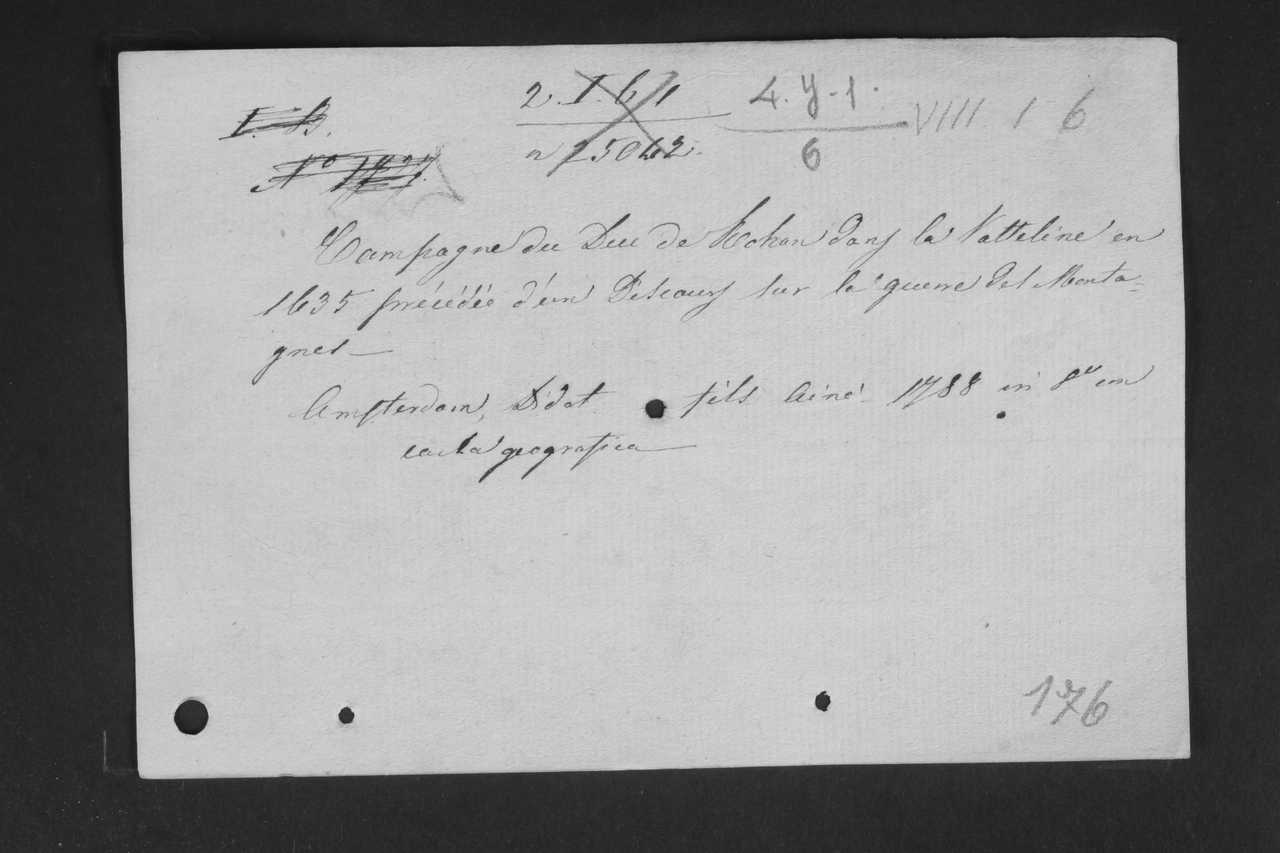 I. B. 2. I. 6 1 4. y - 1. VIII 1 6
n 25042. 6
Nº
Campagne du Duc de Rohan dans la Valteline en
1635 précédée d'un Discours sur la guerre des Monta-
gnes
Amsterdam, Didot fils ainé 1788 in 8º con
carta geografica
176